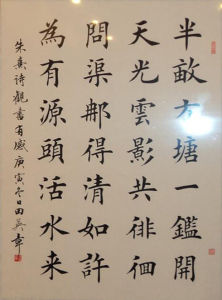 半畝方塘一鑑開
天光雲影共徘徊
問渠那得清如許
為有源頭活水来
朱熹詩觀書有感庚寅冬日田英章